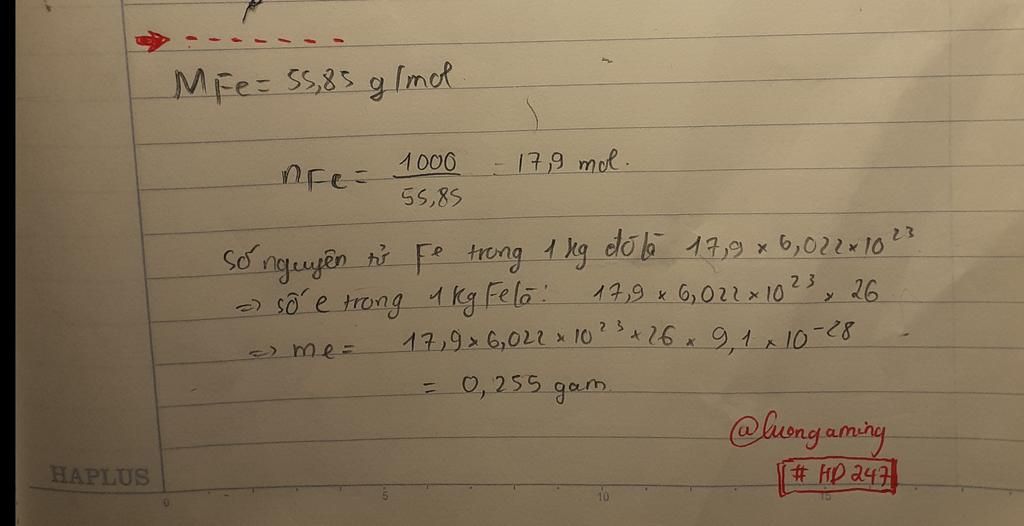 MFe = 55,85 g/mol
nFe = 1000 / 55,85 = 17,9 mol.
Số nguyên tử Fe trong 1 kg đó là 17,9 × 6,022 × 10²³
=> số e trong 1 kg Fe là: 17,9 × 6,022 × 10²³ × 26
=> me = 17,9 × 6,022 × 10²³ × 26 × 9,1 × 10⁻²⁸
= 0,255 gam
@luongaming
# HD 247
HAPLUS
0 5 10 15